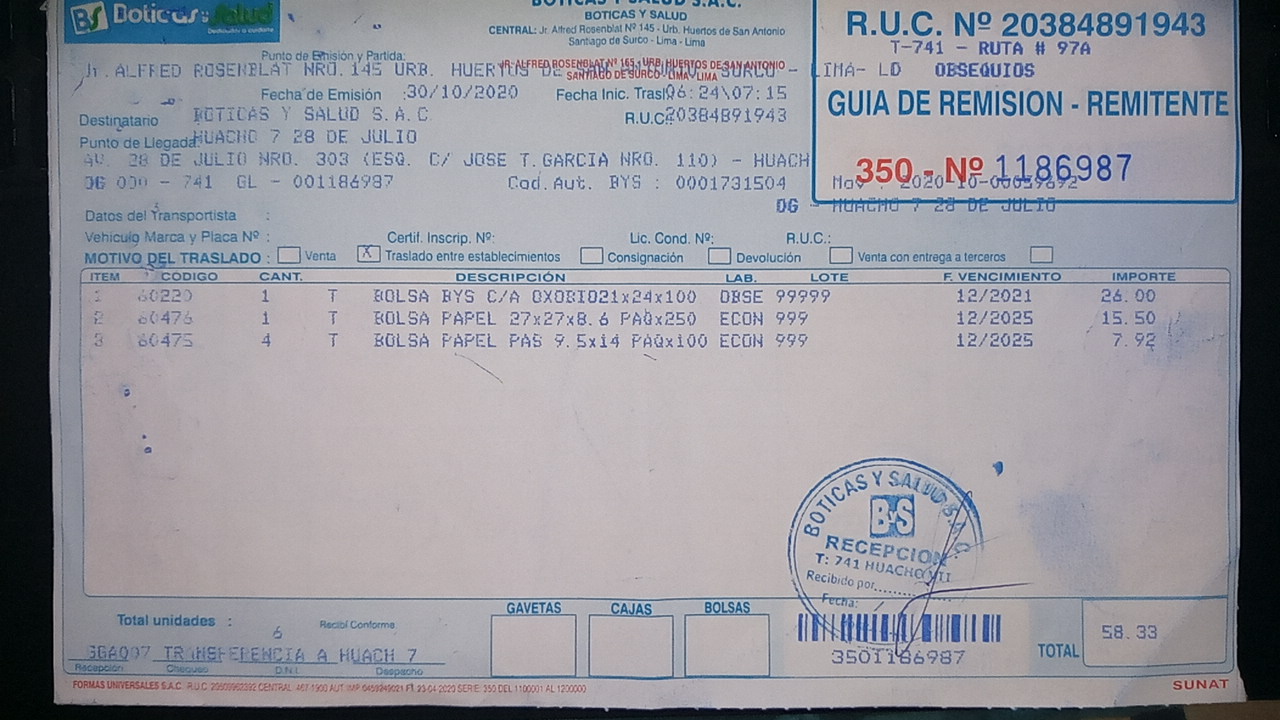 BS Boticas y Salud
Dedicados a cuidarte
BOTICAS Y SALUD S.A.C.
BOTICAS Y SALUD
CENTRAL: Jr. Alfred Rosenblat Nº 145 - Urb. Huertos de San Antonio
Santiago de Surco - Lima - Lima
R.U.C. Nº 20384891943
T-741 - RUTA # 97A
OBSEQUIOS
GUIA DE REMISION - REMITENTE
350 - Nº 1186987
Punto de Emisión y Partida:
Jr. ALFRED ROSENBLAT NRO. 145 URB. HUERTOS DE SURCO - LIMA- LD
SANTIAGO DE SURCO - LIMA - LIMA
Fecha de Emisión :30/10/2020 Fecha Inic. Trasl 06:24\07:15
Destinatario BOTICAS Y SALUD S.A.C. R.U.C.: 20384891943
Punto de Llegada: HUACHO 7 28 DE JULIO
AV. 28 DE JULIO NRO. 303 (ESQ. C/ JOSE T.GARCIA NRO. 110) - HUACH
OG 000 - 741 GL - 001186987 Cod.Aut. BYS : 0001731504
OG - HUACHO 7 28 DE JULIO
Datos del Transportista :
Vehiculo Marca y Placa Nº : Certif. Inscrip. Nº: Lic. Cond. Nº: R.U.C.:
MOTIVO DEL TRASLADO : Venta X Traslado entre establecimientos Consignación Devolución Venta con entrega a terceros
ITEM CODIGO CANT. DESCRIPCIÓN LAB. LOTE F. VENCIMIENTO IMPORTE
1 60220 1 T BOLSA BYS C/A OXOBIO21x24x100 OBSE 99999 12/2021 26.00
2 60476 1 T BOLSA PAPEL 27x27x8.6 PAQx250 ECON 999 12/2025 15.50
3 60475 4 T BOLSA PAPEL PAS 9.5x14 PAQx100 ECON 999 12/2025 7.92
BOTICAS Y SALUD S.A.C.
BYS
RECEPCION
T: 741 HUACHO VII
Recibido por
Fecha:
GAVETAS CAJAS BOLSAS
Total unidades : 6 Recibí Conforme
3501186987
TOTAL 58.33
TRANSFERENCIA A HUACH 7
Recepción Chequeo D.N.I. Despacho
FORMAS UNIVERSALES S.A.C. R.U.C. SERIE: 350 DEL 1100001 AL 1200000
SUNAT